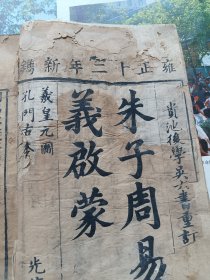 雍正十三年新鐫
貴池後學吳六書重訂
朱子周易
義啟蒙
羲皇元圖
孔門古本
光